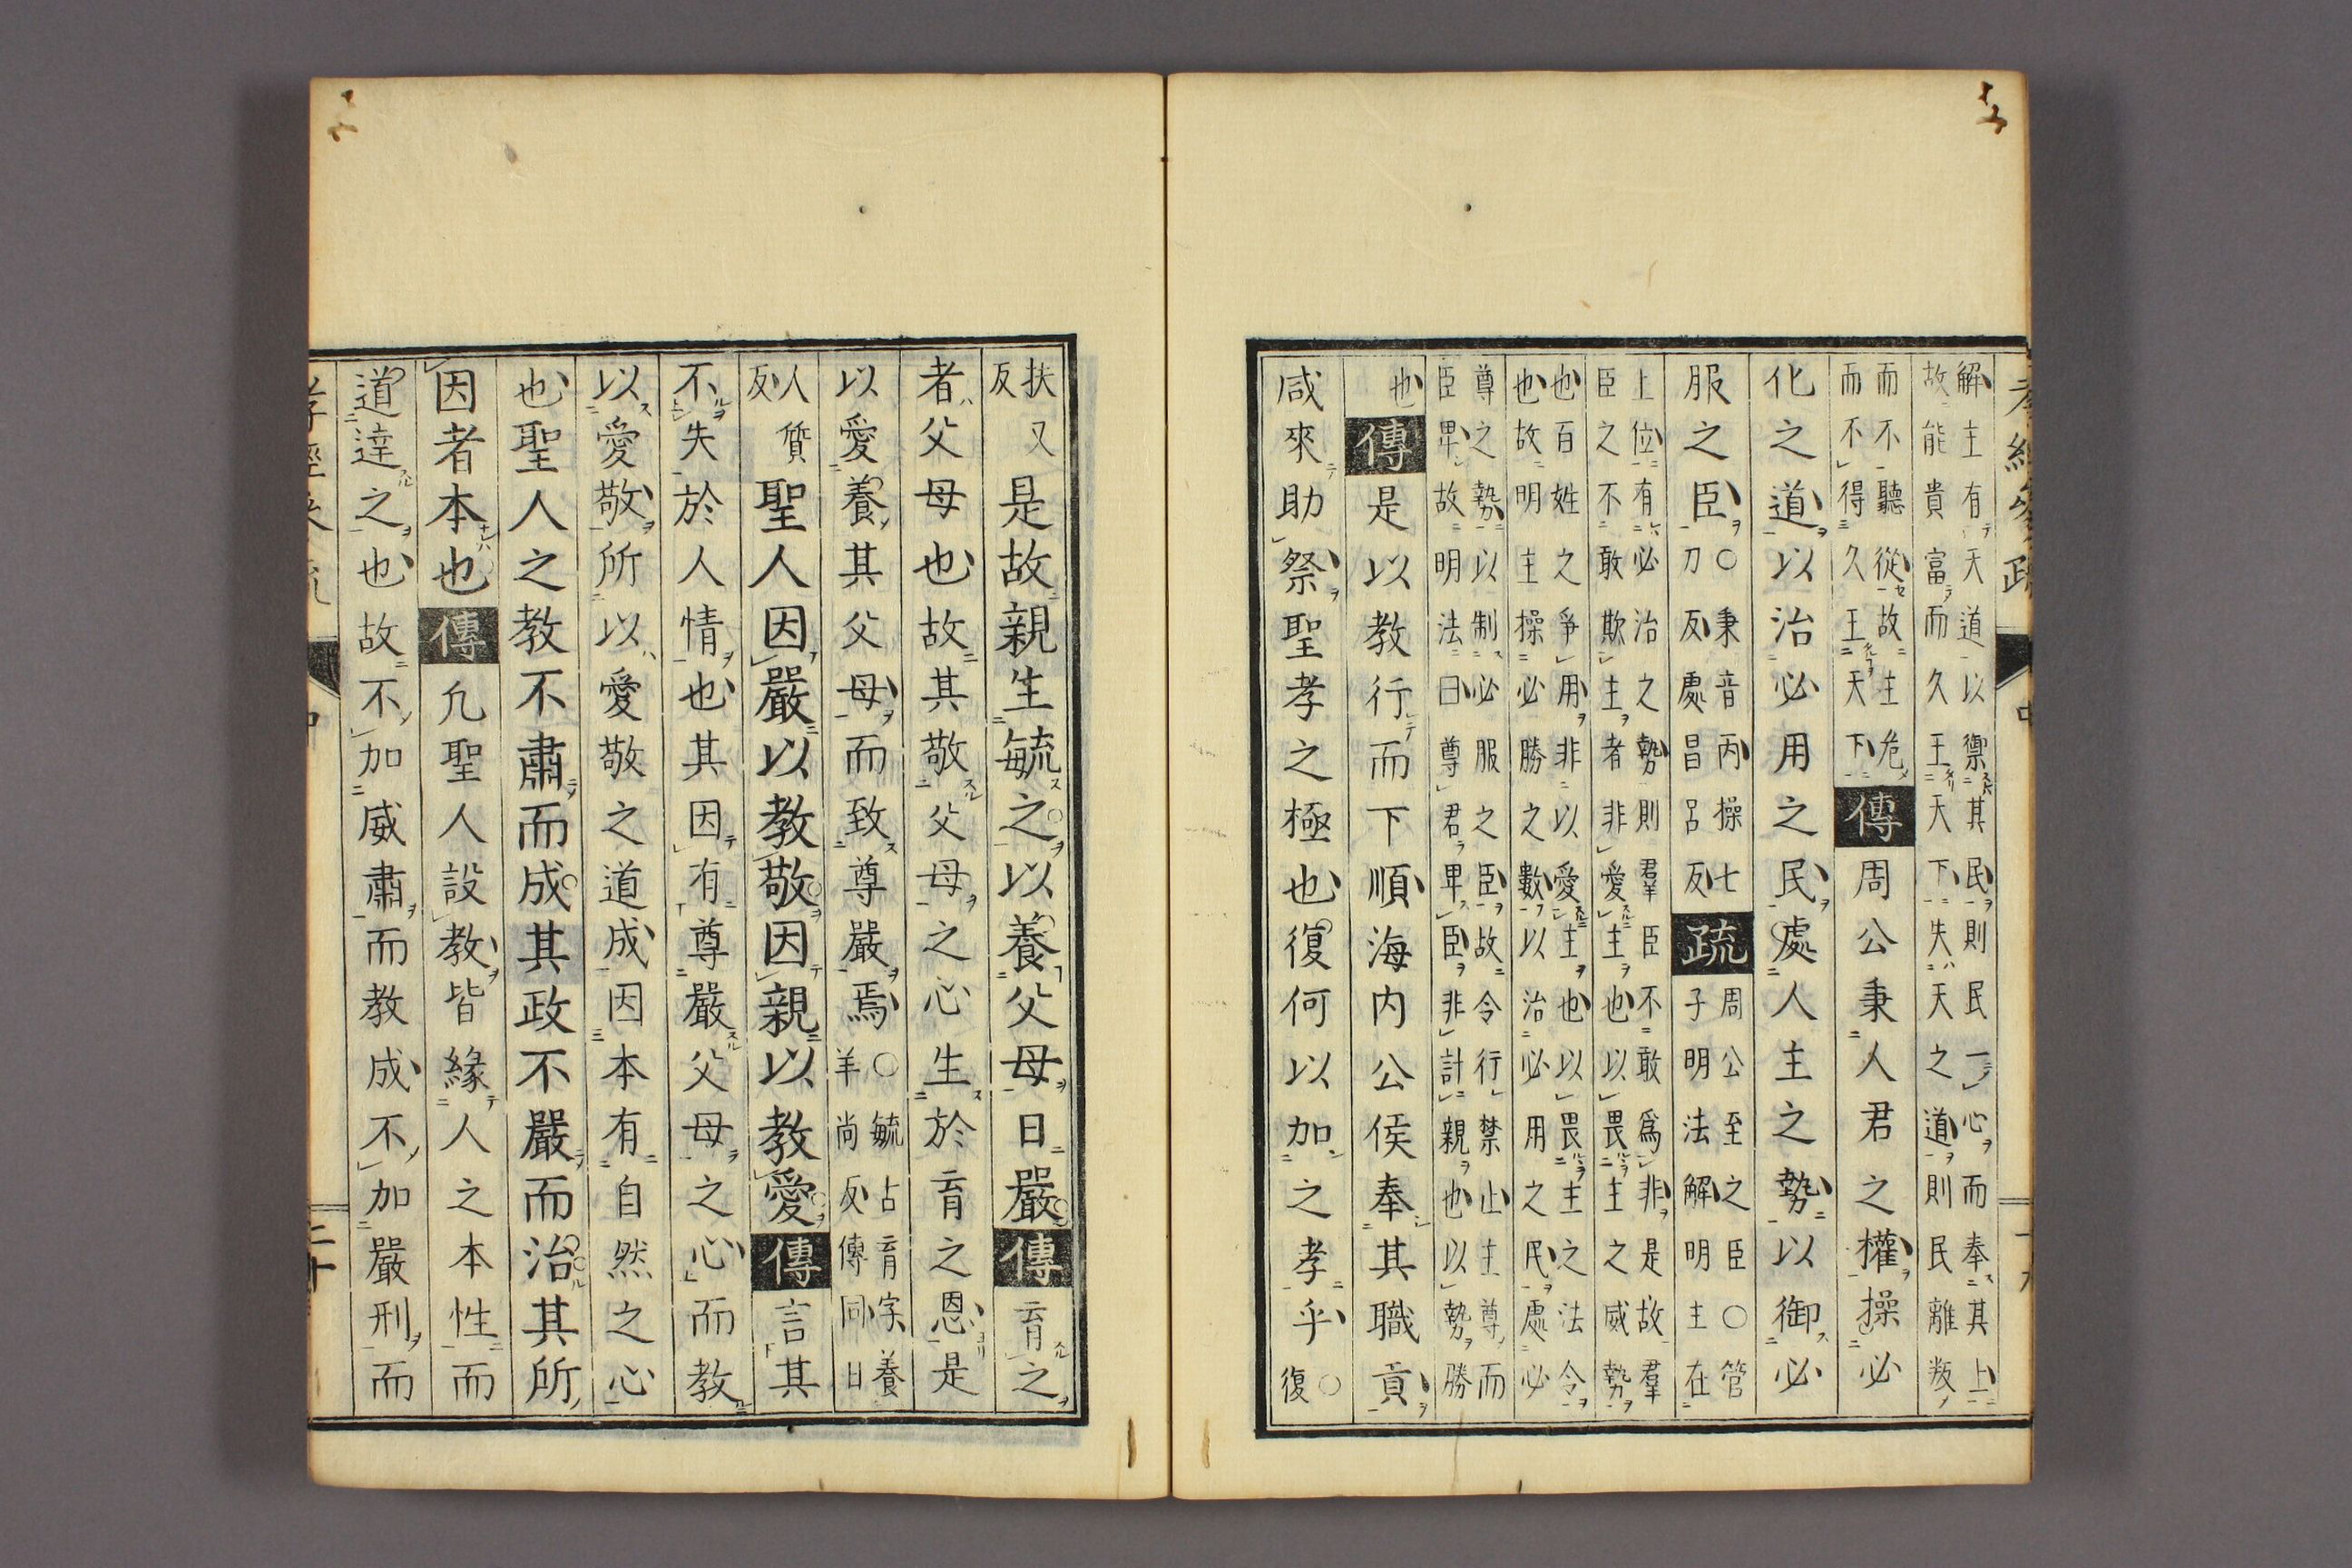 解主有天道以禦其民則民一心而奉其上
故能貴富而久王天下失天之道則民離叛
而不聽從故主危
而不得久王天下
傳周公秉人君之權操必
化之道以治必用之民處人主之勢以御必
服之臣
○秉音丙操七
刀反處昌呂反
疏
周公至之臣○管
子明法解明主在
上位有必治之勢則羣臣不敢爲非是故羣
臣之不敢欺主者非愛主也以畏主之威勢
也百姓之爭用非以愛主也以畏主之法令
也故明主操必勝之數以治必用之民處必
尊之勢以制必服之臣故令行禁止主尊而
臣卑故明法曰尊君卑臣非計親也以勢勝
也
傳是以教行而下順海内公侯奉其職貢
咸來助祭聖孝之極也復何以加之孝乎
○
復
扶又
反
是故親生毓之以養父母日嚴傳育之
者父母也故其敬父母之心生於育之恩是
以愛養其父母而致尊嚴焉
○毓占育字養
羊尚反傳同日
人質
反
聖人因嚴以教敬因親以教愛傳言其
不失於人情也其因有尊嚴父母之心而教
以愛敬所以愛敬之道成因本有自然之心
也聖人之教不肅而成其政不嚴而治其所
因者本也傳凢聖人設教皆緣人之本性而
道達之也故不加威肅而教成不加嚴刑而